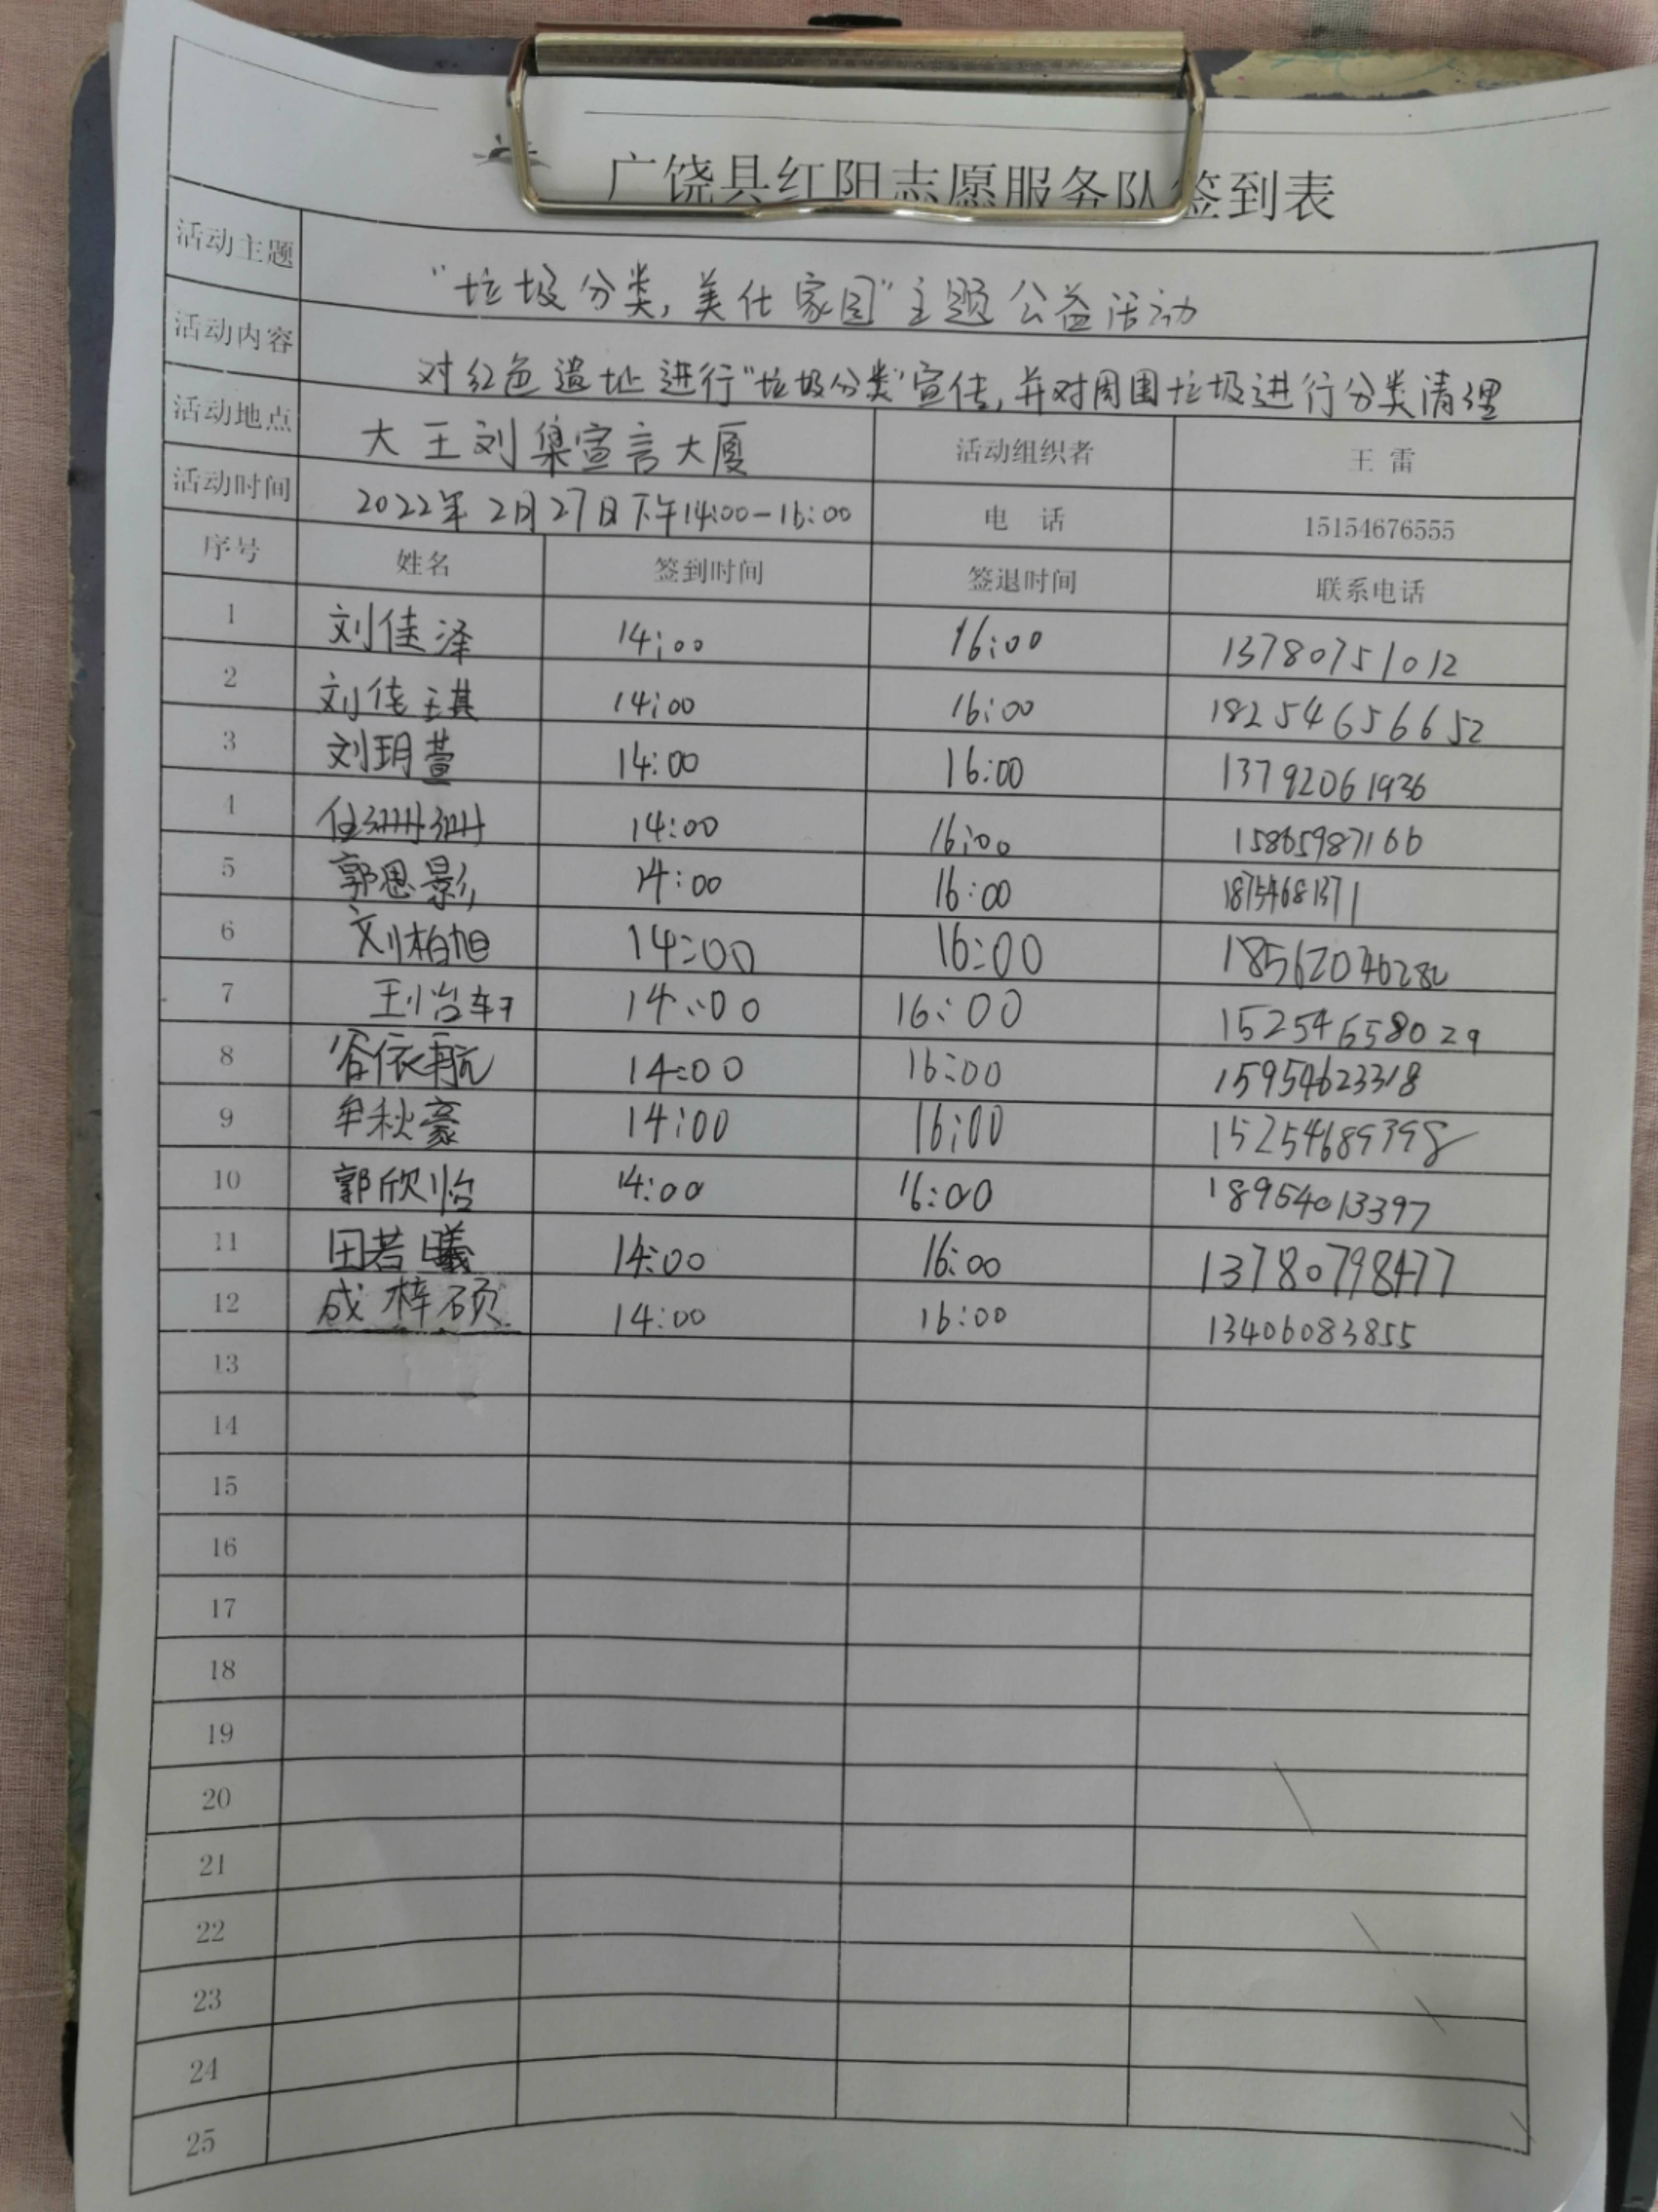 广饶县红阳志愿服务队签到表
活动主题 “垃圾分类,美化家园”主题公益活动
活动内容 对红色遗址进行“垃圾分类”宣传,并对周围垃圾进行分类清理
活动地点 大王刘集宣言大厦 活动组织者 王雷
活动时间 2022年2月27日下午14:00-16:00 电话 15154676555
序号 姓名 签到时间 签退时间 联系电话
1 刘佳泽 14:00 16:00 13780751012
2 刘佳琪 14:00 16:00 18254656652
3 刘玥萱 14:00 16:00 13792061936
4 14:00 16:00 15865987166
5 郭思影 14:00 16:00 18754681371
6 刘柏旭 14:00 16:00
7 14:00 16:00 15254658029
8 谷依航 14:00 16:00 15954623318
9 牟秋豪 14:00 16:00 15254689398
10 郭欣怡 14:00 16:00 18954013397
11 田若曦 14:00 16:00 13780798477
12 成梓硕 14:00 16:00 13406083855
13
14
15
16
17
18
19
20
21
22
23
24
25